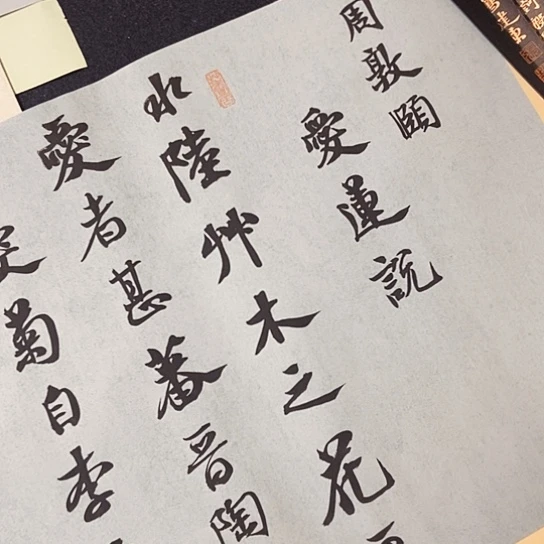 周敦頤
愛蓮說
水陸艸木之花
愛者甚蕃晉陶
愛菊自李